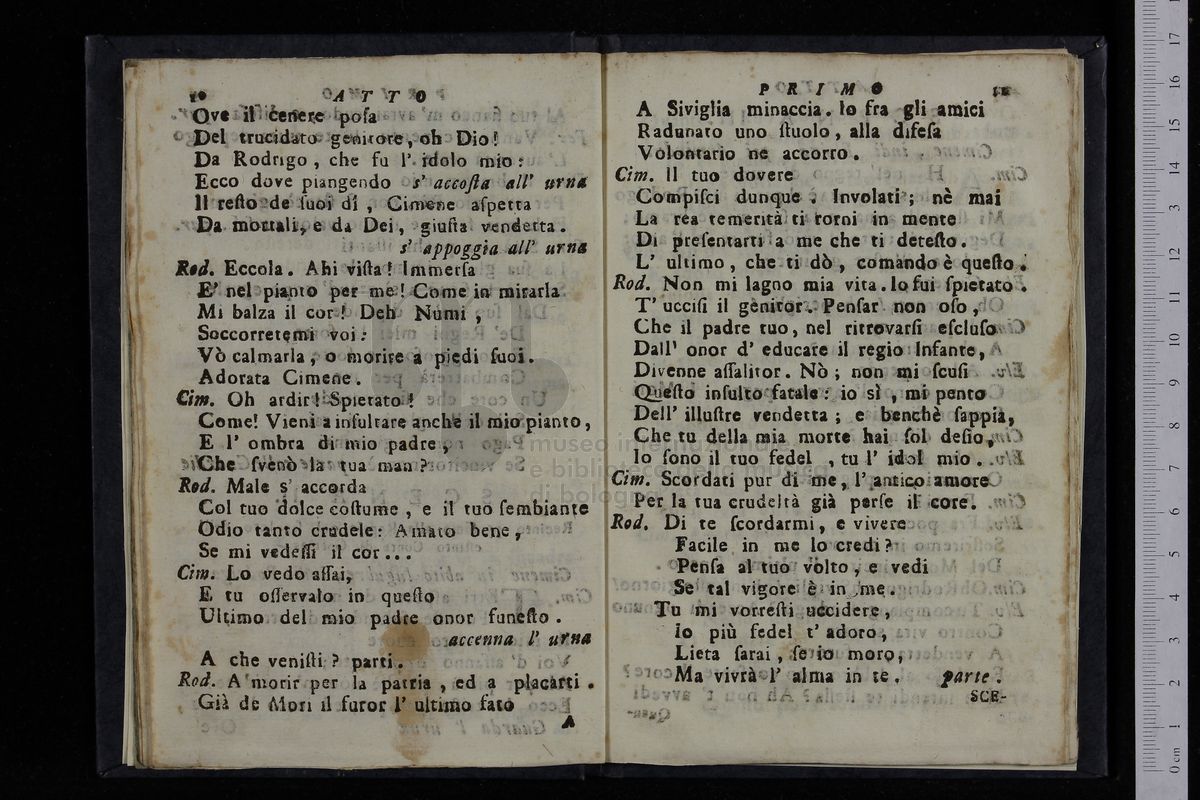 10 ATTO
Ove il cenere posa
Del trucidato genitore, oh Dio!
Da Rodrigo, che fu l' idolo mio:
Ecco dove piangendo s' accoſta all' urna
Il reſto de ſuoi dì, Cimene aſpetta
Da mortali, e da Dei, giuſta vendetta.
s' appoggia all' urna
Rod. Eccola. Ahi viſta! Immerſa
E' nel pianto per me! Come in mirarla
Mi balza il cor! Deh Numi,
Soccorretemi voi:
Vò calmarla, o morire a piedi ſuoi.
Adorata Cimene.
Cim. Oh ardir! Spietato!
Come! Vieni a inſultare anche il mio pianto,
E l' ombra di mio padre,
Che ſvenò la tua man?
Rod. Male s' accorda
Col tuo dolce coſtume, e il tuo ſembiante
Odio tanto crudele: Amato bene,
Se mi vedeſſi il cor...
Cim. Lo vedo aſſai,
E tu oſſervalo in queſto
Ultimo del mio padre onor funeſto.
accenna l' urna
A che veniſti? parti.
Rod. A morir per la patria, ed a placarti.
Già de Mori il furor l' ultimo fato
A
PRIMO 11
A Siviglia minaccia. Io fra gli amici
Radunato uno ſtuolo, alla difeſa
Volontario ne accorro.
Cim. Il tuo dovere
Compiſci dunque. Involati; nè mai
La rea temerità ti torni in mente
Di preſentarti a me che ti deteſto.
L' ultimo, che ti dò, comando è queſto.
Rod. Non mi lagno mia vita. Io fui ſpietato.
T' ucciſi il genitor. Penſar non oſo,
Che il padre tuo, nel ritrovarſi eſcluſo
Dall' onor d' educare il regio Infante,
Divenne aſſalitor. Nò; non mi ſcuſi
Queſto inſulto fatale: io sì, mi pento
Dell' illuſtre vendetta; e benchè ſappia,
Che tu della mia morte hai ſol deſio,
Io ſono il tuo fedel, tu l' idol mio.
Cim. Scordati pur di me, l' antico amore
Per la tua crudeltà già perſe il core.
Rod. Di te ſcordarmi, e vivere
Facile in me lo credi?
Penſa al tuo volto, e vedi
Se tal vigore è in me.
Tu mi vorreſti uccidere,
Io più fedel t' adoro,
Lieta ſarai, ſe io moro,
Ma vivrà l' alma in te. parte.
SCE-
museo internazionale
e biblioteca della musica
di bologna